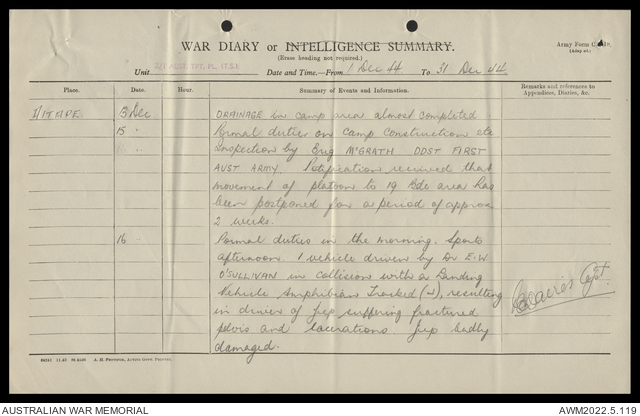 WAR DIARY or INTELLIGENCE SUMMARY.
(Erase heading not required.)
Army Form
Unit 2/1 AUST. TPT. PL. Date and Time.—From 1 Dec 44 To 31 Dec 44
Place. Date. Hour. Summary of Events and Information. Remarks and references to Appendices, Diaries, &c.
Dec DRAINAGE in camp area almost completed.
15 Normal duties on camp construction etc
Inspection by Brig McGRATH DDST FIRST
AUST ARMY. Notification received that
movement of platoon to 19 Bde area has
been postponed for a period of approx
2 weeks.
16 Normal duties in the morning. Sports
afternoon. 1 vehicle driven by Dr E.W
O'SULLIVAN in collision with a Landing
Vehicle Amphibian Tracked, resulting
in driver of jeep suffering fractured
pelvis and lacerations. Jeep badly
damaged.
Capt.
AUSTRALIAN WAR MEMORIAL AWM2022.5.119